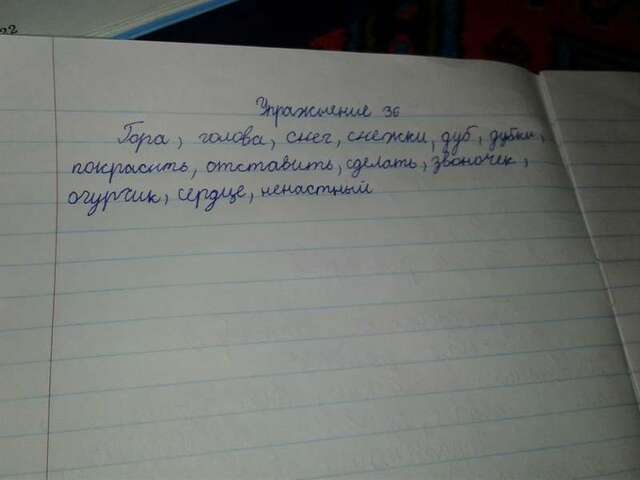 Упражнение 36
Гора, голова, снег, снежки, дуб, дубки,
покрасить, отставить, сделать, звоночек,
огурчик, сердце, ненастный